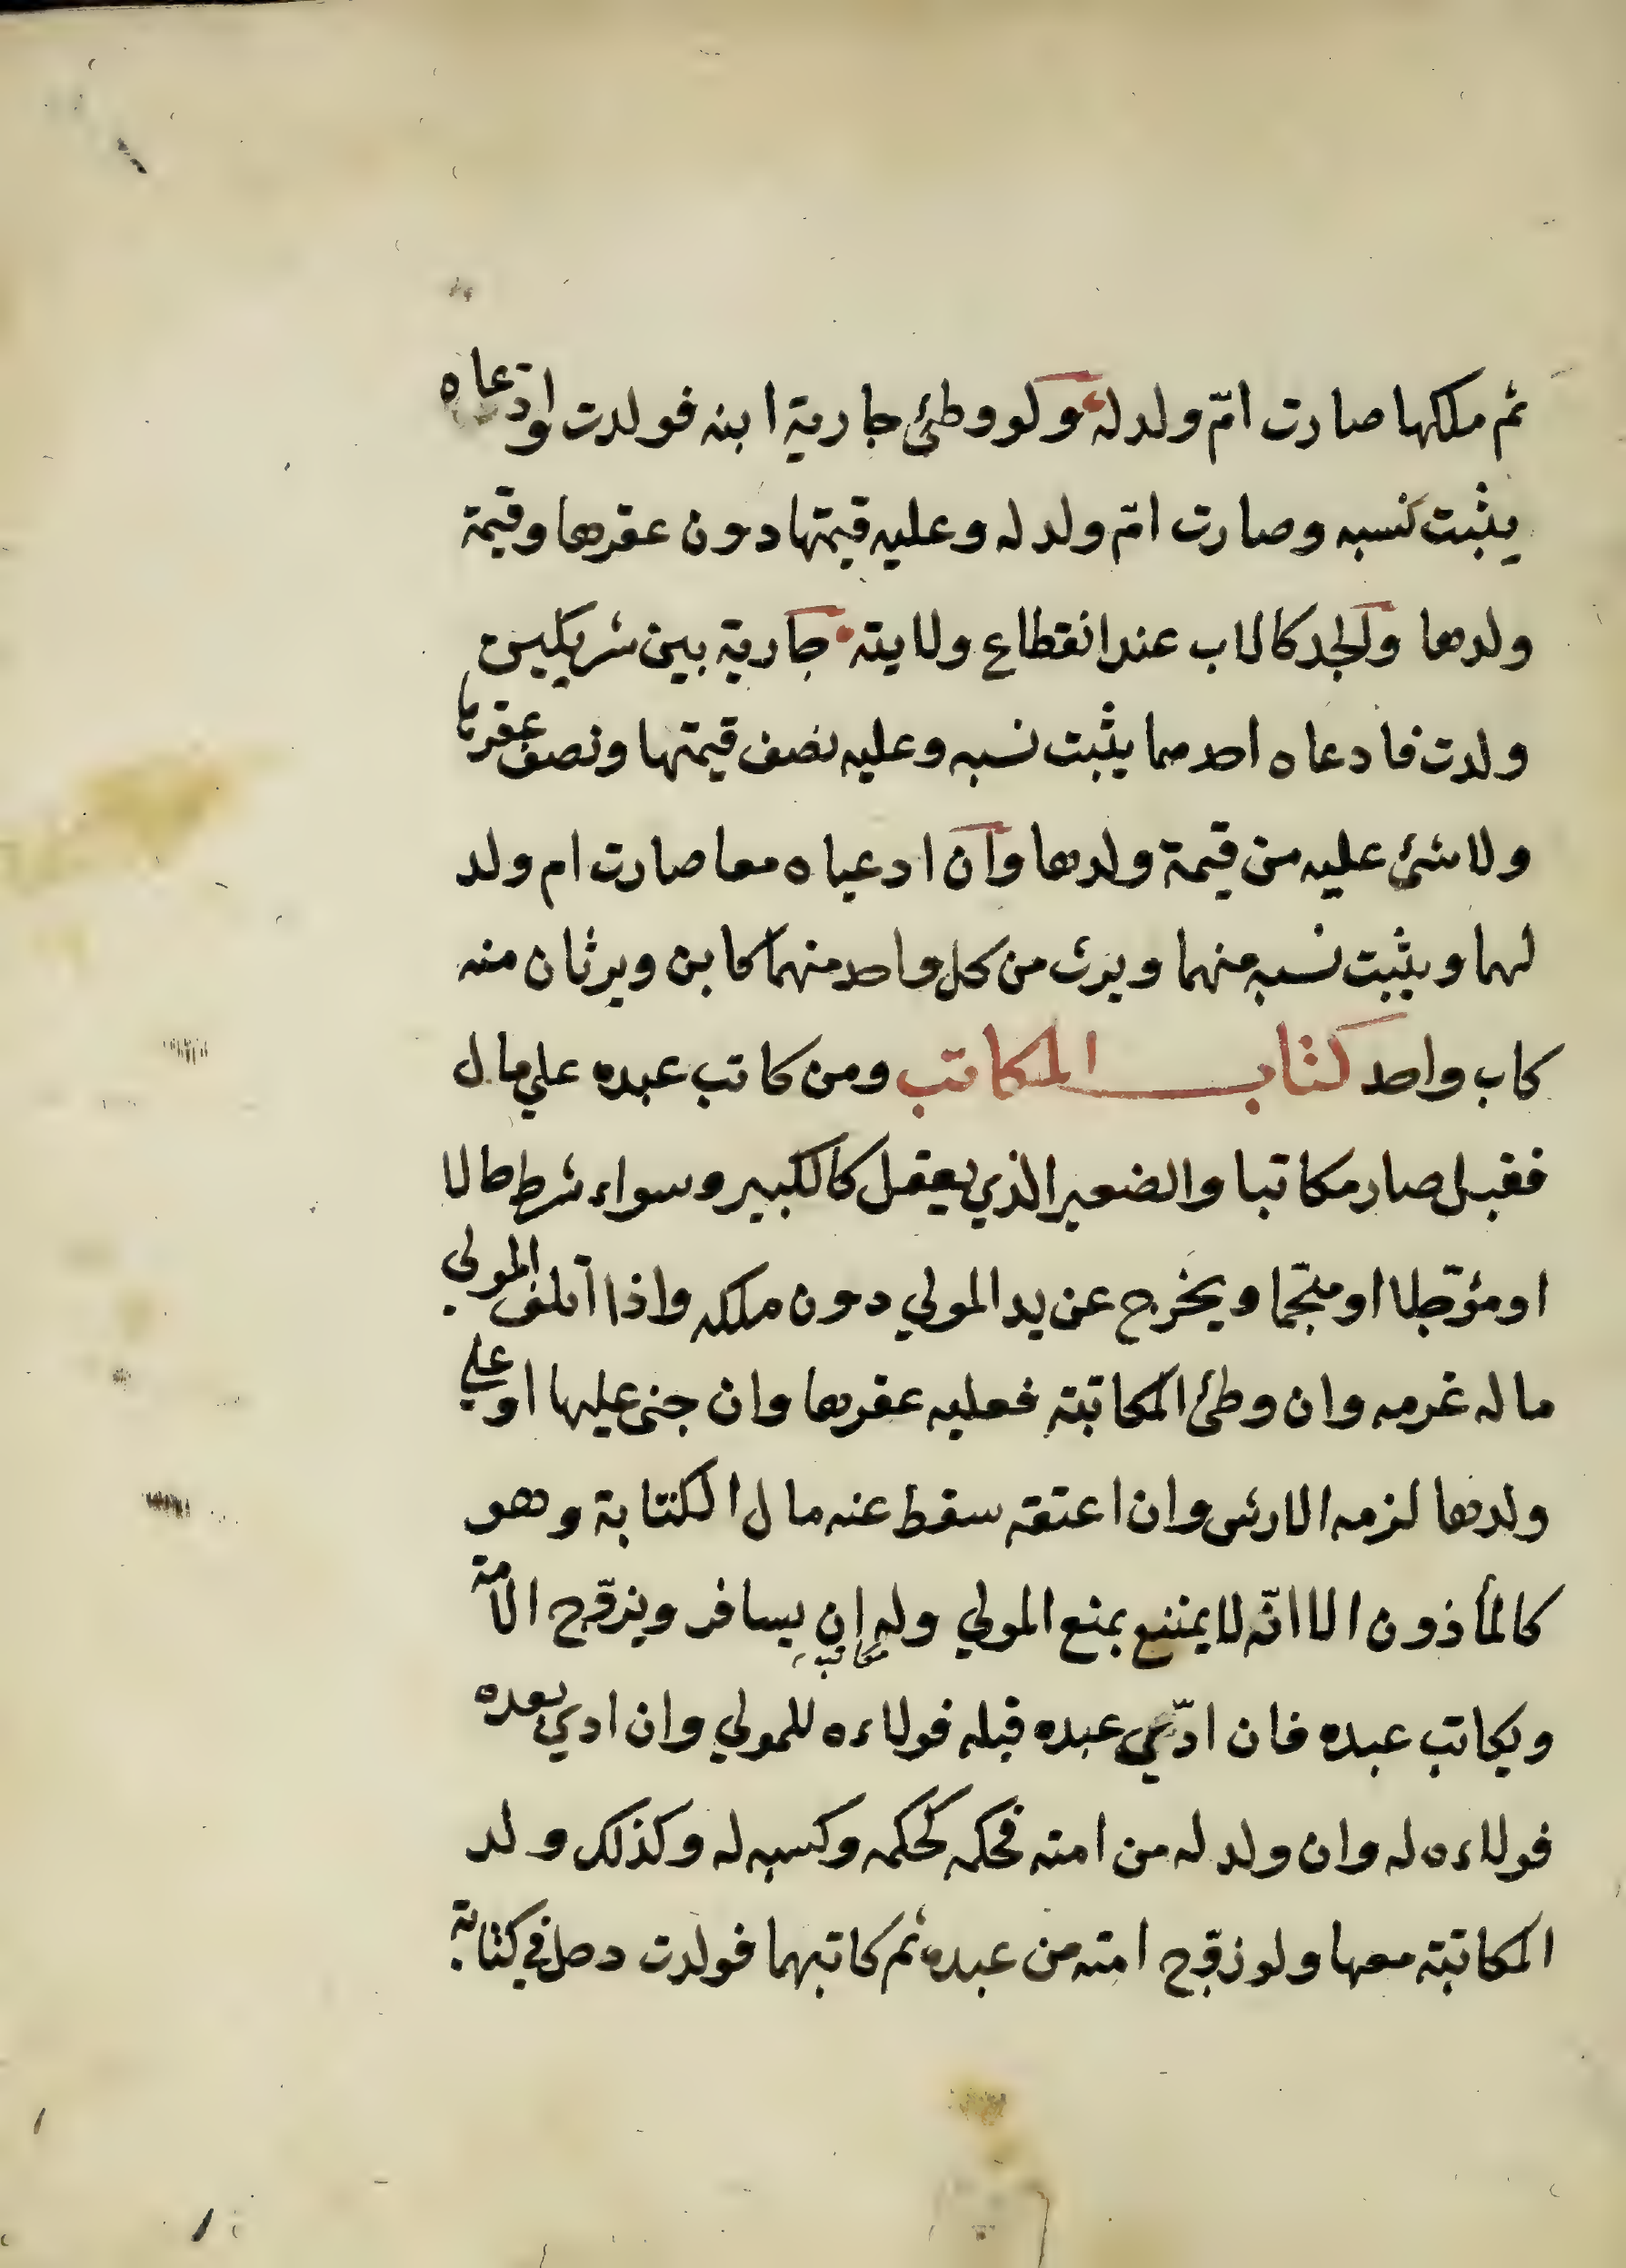 ثم ملكها صارت امّ ولد له ولو وطئ جارية ابنه فولدت وادعاه
يثبت نسبه وصارت امّ ولد له وعليه قيمتها دون عقرها وقيمة
ولدها والجد كالاب عند انقطاع ولايته جارية بين شريكين
ولدت فادعاه احدهما يثبت نسبه وعليه نصف قيمتها ونصف عقرها
ولا شئ عليه من قيمة ولدها وان ادعياه معا صارت ام ولد
لهما ويثبت نسبه منهما ويرث من كل واحد منهما كابن ويرثان منه
كاب واحد كتاب المكاتب ومن كاتب عبده علي مال
فقبل صار مكاتبا والصغير الذي يعقل كالكبير وسواء شرط حالا
او مؤجّلا او منجّما ويخرج عن يد المولي دون ملكه واذا اتلف المولي
ماله غرمه وان وطئ المكاتبة فعليه عقرها وان جنى عليها او علي
ولدها لزمه الارش وان اعتقه سقط عنه مال الكتابة وهو
كالمأذون الا انّه لا يمتنع بمنع المولي وله ان يسافر ويزوّج الامة
ويكاتب عبده فان ادّي عبده قبله فولاءه للمولي وان ادي بعده
فولاءه له وان ولد له من امته فحكمه كحكمه وكسبه له وكذلك ولد
المكاتبة معها ولو زوّج امته من عبده ثم كاتبهما فولدت دخل في كتابة